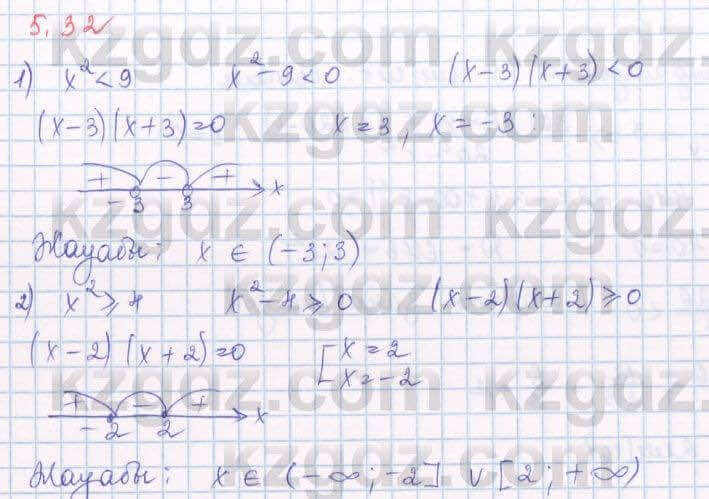 5.32
1) x² < 9 x² - 9 < 0 (x-3)(x+3) < 0
(x-3)(x+3) = 0 x = 3, x = -3
+ - + x
-3 3
Жауабы: x ∈ (-3; 3)
2) x² ≥ 4 x² - 4 ≥ 0 (x-2)(x+2) ≥ 0
(x-2)(x+2) = 0 [x = 2
x = -2
+ - + x
-2 2
Жауабы: x ∈ (-∞; -2] ∨ [2; +∞)
kzgdz.com
kzgdz.com
kzgdz.com
kzgdz.com
kzgdz.com
kzgdz.com